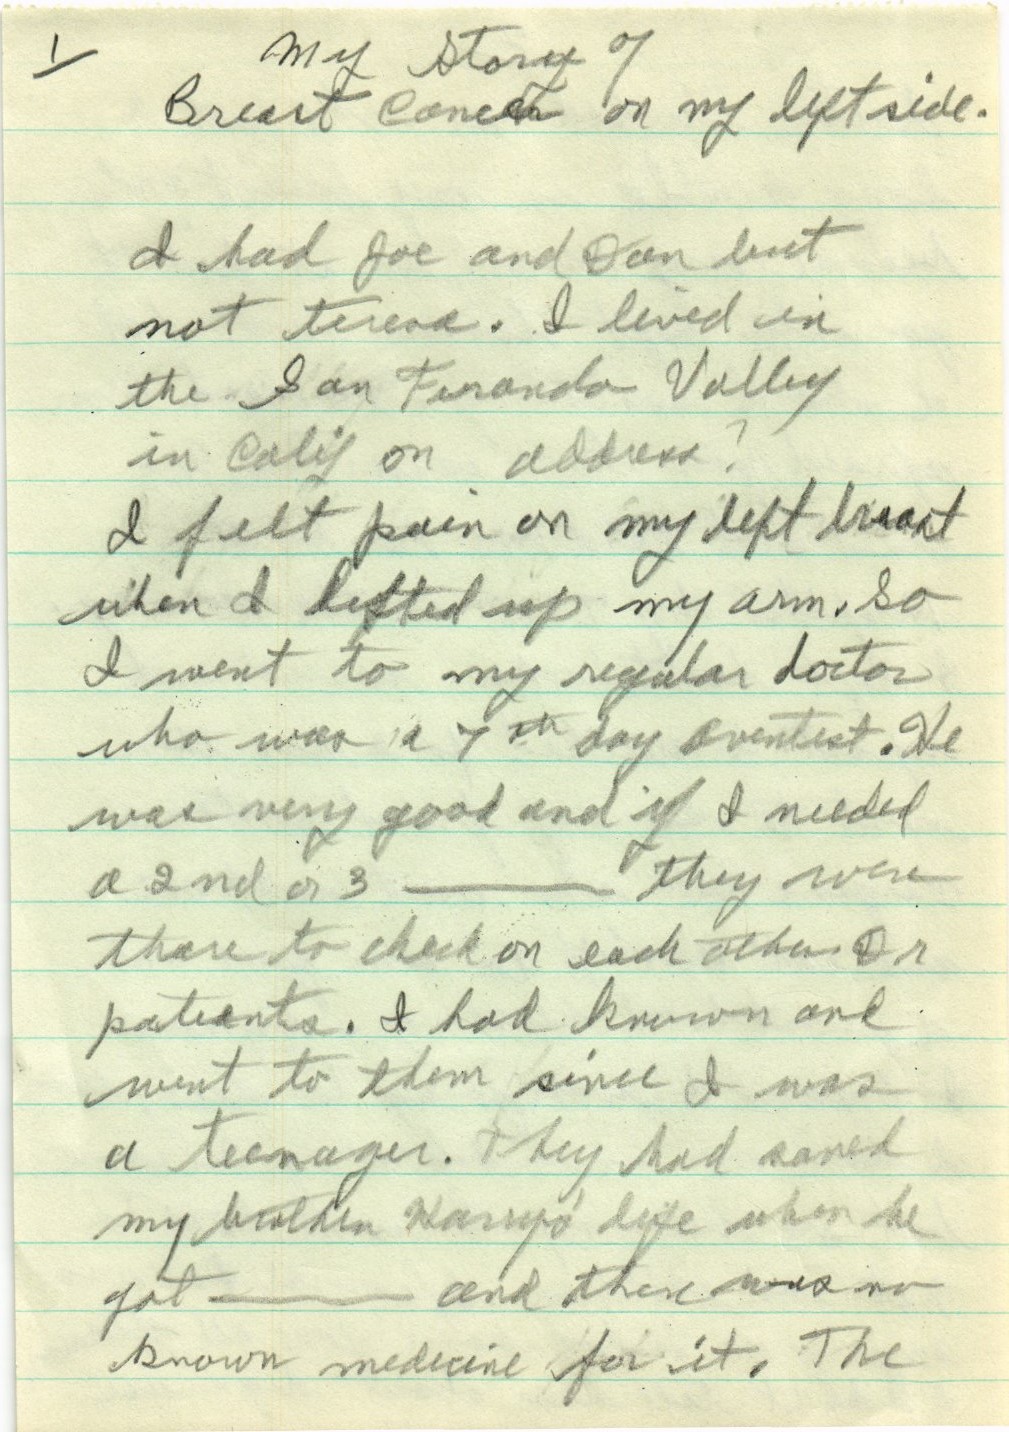 1
My Story of
Breast Cancer on my left side.
I had Joe and Dan but
not teresa. I lived in
the San Fernando Valley
in Calif on address?
I felt pain on my left breast
when I lefted up my arm. So
I went to my regular doctor
who was a 7th day Aventest. He
was very good and if I needed
a 2nd or 3 ——— they were
there to check on each other Or
patients. I had known and
went to them since I was
a teenager. They had saved
my brother life when he
got ——— and there was no
known medecine for it. The